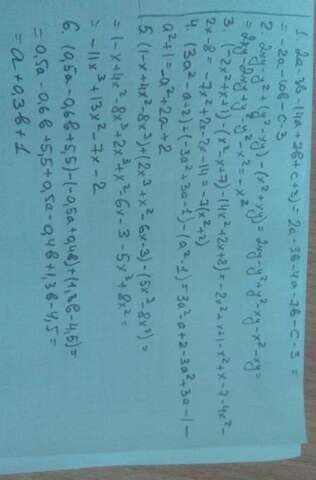 1. 2a-3b-(4a+2b+c+3) = 2a-3b-4a-2b-c-3 =
= -2a-10b-c-3
2. (2xy-y²)+(y²-xy)-(x²+xy) = 2xy-y²+y²-xy-x²-xy =
= 2xy-2xy+y²-y²-x² = -x²
3. (-2x²+x+1)-(x²-x+7)-(4x²+2x+8) = -2x²+x+1-x²+x-7-4x²-
2x-8 = -7x²+2x-2x-14 = -7(x²+2)
4. (3a²-a+2)+(-3a²+3a-1)-(a²-1) = 3a²-a+2-3a²+3a-1-
a²+1 = -a²+2a-2
5. (1-x+4x²-8x³)+(2x³+x²-6x-3)-(5x³-8x²) =
= 1-x+4x²-8x³+2x³+x²-6x-3-5x³+8x² =
= -11x³+13x²-7x-2
6. (0,5a-0,6b+5,5)-(-0,5a+0,4b)+(1,3b-4,5) =
= 0,5a-0,6b+5,5+0,5a-0,4b+1,3b-4,5 =
= a+0,3b+1